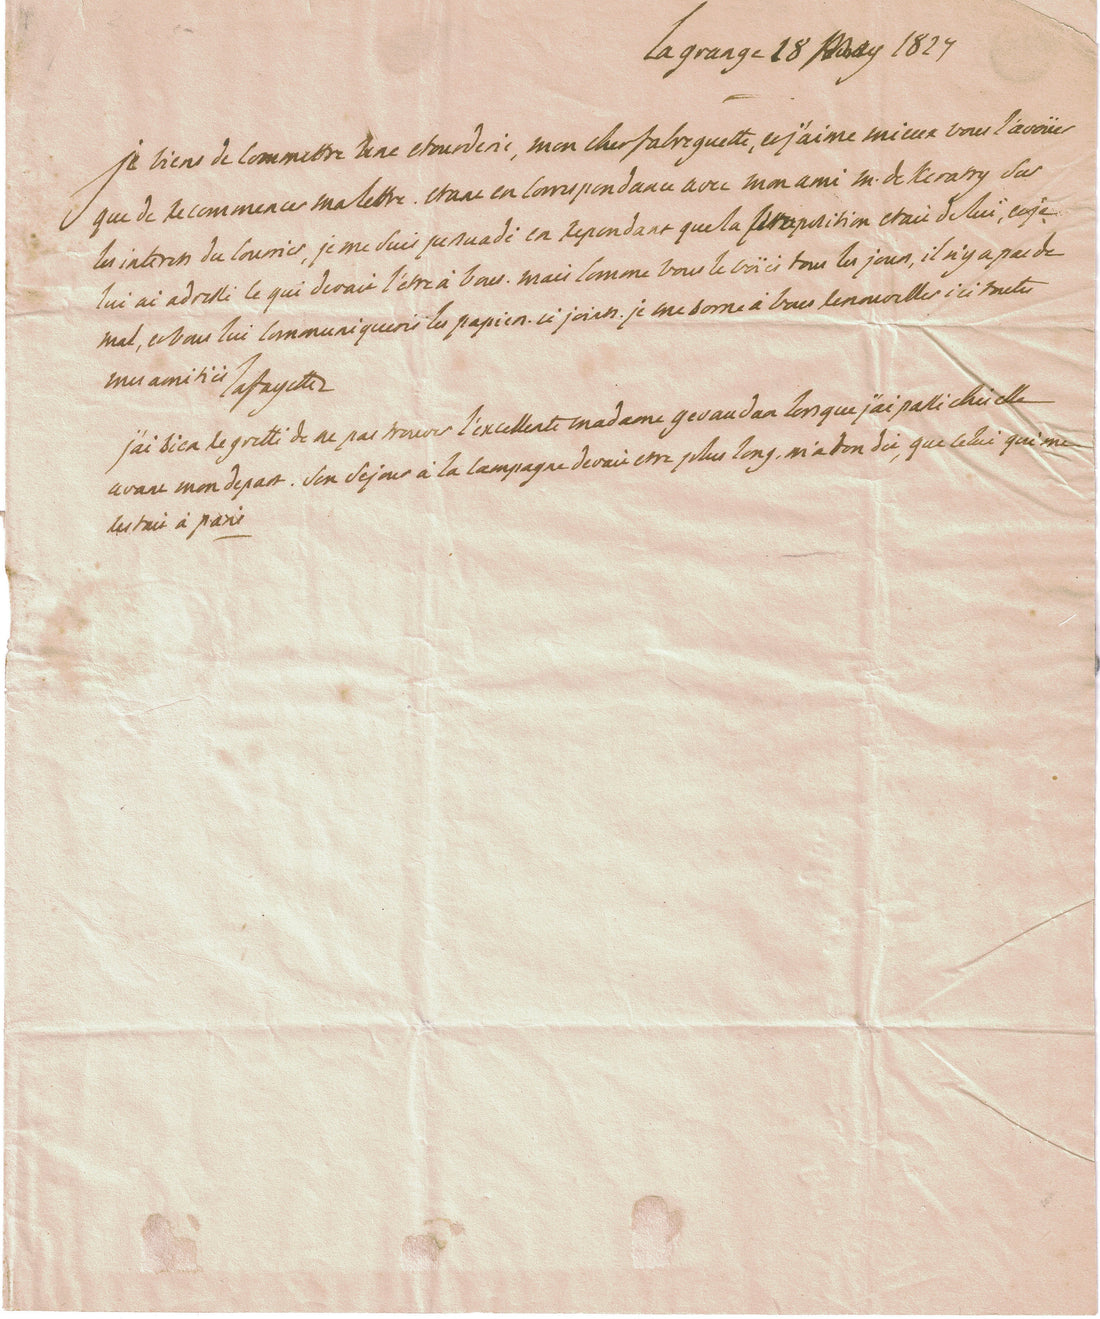 Lagrange 28 May 1827
je viens de Commettre une etourderie, mon cher fabreguette, et j'aime mieux vous l'avoüer
que de recommencer ma lettre. etant en Correspondance avec mon ami m. de Keratry sur
les interets du Courrier, je me suis persuadé en repondant que la proposition etait de lui, et je
lui ai adressé ce qui devait l'etre à vous. mais Comme vous le voïés tous les jours, il n'y a pas de
mal, et vous lui Communiquerés les papiers ci joints. je me borne à vous renouveller ici toutes
mes amitiés Lafayette
j'ai bien regretté de ne pas trouver l'excellente madame gevaudan lorsque j'ai passé chés elle
avant mon depart. Son Sejour à la Campagne devait etre plus long, m'a t'on dit, que celui qui me
restait à paris